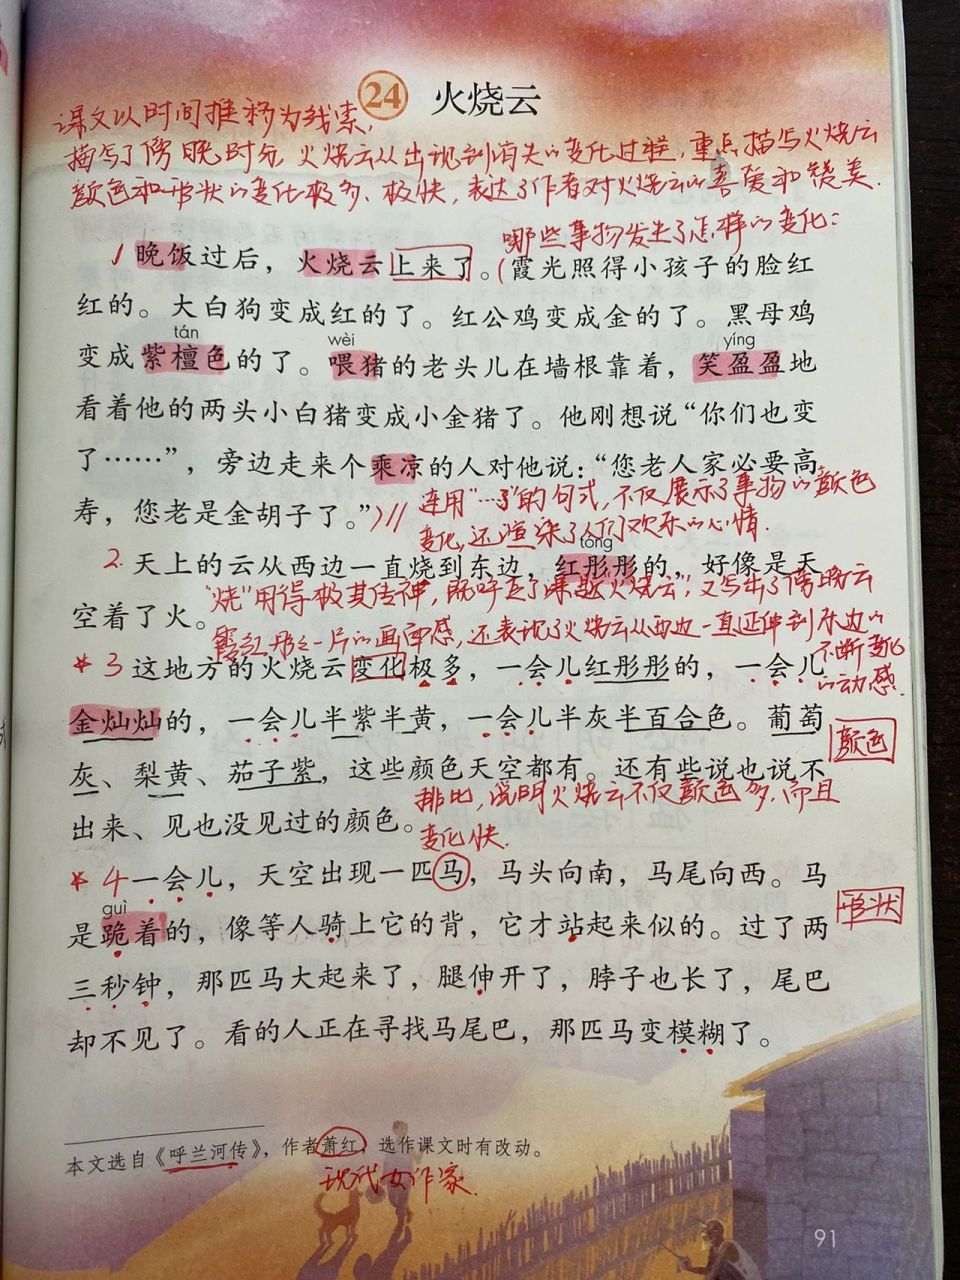 24 火烧云
课文以时间推移为线索,
描写了傍晚时分,火烧云从出现到消失的变化过程,重点描写火烧云
颜色和形状的变化极多、极快,表达了作者对火烧云的喜爱和赞美.
哪些事物发生了怎样的变化:
1 晚饭过后，火烧云上来了。(霞光照得小孩子的脸红
红的。大白狗变成红的了。红公鸡变成金的了。黑母鸡
tán
变成紫檀色的了。喂猪的老头儿在墙根靠着，笑盈盈地
wèi
yíng
看着他的两头小白猪变成小金猪了。他刚想说“你们也变
了……”，旁边走来个乘凉的人对他说：“您老人家必要高
寿，您老是金胡子了。”)//
连用“…了”的句式,不仅展示了事物的颜色
变化,还渲染了人们欢乐的心情.
tóng
2. 天上的云从西边一直烧到东边，红彤彤的，好像是天
空着了火。
“烧”用得极其传神,既呼应了课题“火烧云”,又写出了傍晚云
霞红彤彤一片的画面感,还表现了火烧云从西边一直延伸到东边的
不断变化
的动感.
* 3 这地方的火烧云变化极多，一会儿红彤彤的，一会儿
金灿灿的，一会儿半紫半黄，一会儿半灰半百合色。葡萄
颜色
灰、梨黄、茄子紫，这些颜色天空都有。还有些说也说不
出来、见也没见过的颜色。
排比,说明火烧云不仅颜色多,而且
变化快.
* 4 一会儿，天空出现一匹马，马头向南，马尾向西。马
形状
guì
是跪着的，像等人骑上它的背，它才站起来似的。过了两
三秒钟，那匹马大起来了，腿伸开了，脖子也长了，尾巴
却不见了。看的人正在寻找马尾巴，那匹马变模糊了。
本文选自《呼兰河传》，作者萧红，选作课文时有改动。
现代女作家.
91